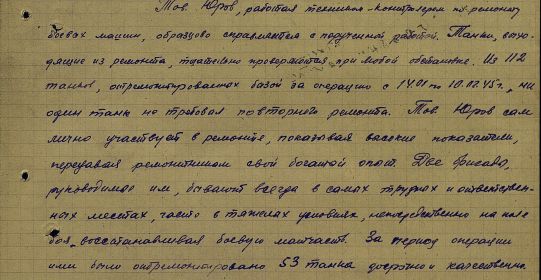 Тов. Юров, работая техником-контролером по ремонту
боевых машин, образцово справляется с порученной работой. Танки, выхо-
дящие из ремонта, тщательно проверяются при любой обстановке. Из 112
танков, отремонтированных базой за операцию с 14.01 по 10.02.45 г., ни
один танк не требовал повторного ремонта. Тов. Юров сам
лично участвует в ремонте, показывая высокие показатели,
передавая ремонтникам свой богатой опыт. Две бригады,
руководимые им, бывают всегда в самых трудных и ответствен-
ных местах, часто в тяжелых условиях, непосредственно на поле
боя, восстанавливая боевую матчасть. За период операции
ими было отремонтировано 53 танка досрочно и качественно.